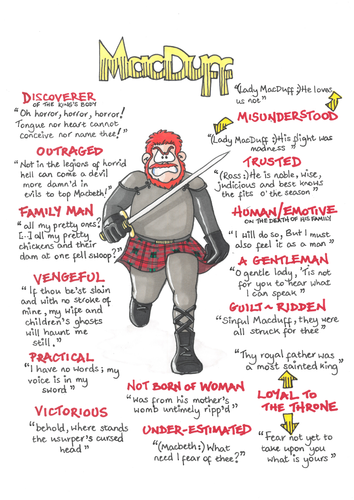 MacDuff
DISCOVERER
OF THE KING'S BODY
"Oh horror, horror, horror!
Tongue nor heart cannot
conceive nor name thee!"
OUTRAGED
"Not in the legions of horrid
hell can come a devil
more damn'd in
evils to top Macbeth!"
FAMILY MAN
"all my pretty ones?
[...] all my pretty
chickens and their
dam at one fell swoop?"
VENGEFUL
"If thou be'st slain
and with no stroke of
mine, my wife and
children's ghosts
will haunt me
still."
PRACTICAL
"I have no words; my
voice is in my
sword"
VICTORIOUS
"behold, where stands
the usurper's cursed
head"
NOT BORN OF WOMAN
"was from his mother's
womb untimely ripp'd"
UNDER-ESTIMATED
"(Macbeth:) What
need I fear of thee?"
"(Lady MacDuff:) He loves
us not"
MISUNDERSTOOD
"(Lady MacDuff:) His flight was
madness"
TRUSTED
"(Ross:) He is noble, wise,
judicious and best knows
the fits o'the season"
HUMAN/EMOTIVE
ON THE DEATH OF HIS FAMILY
"I will do so, But I must
also feel it as a man"
A GENTLEMAN
"O gentle lady, 'Tis not
for you to hear what
I can speak"
GUILT~RIDDEN
"Sinful Macduff, they were
all struck for thee"
"Thy royal father was
a most sainted king"
LOYAL TO
THE THRONE
"Fear not yet to
take upon you
what is yours"